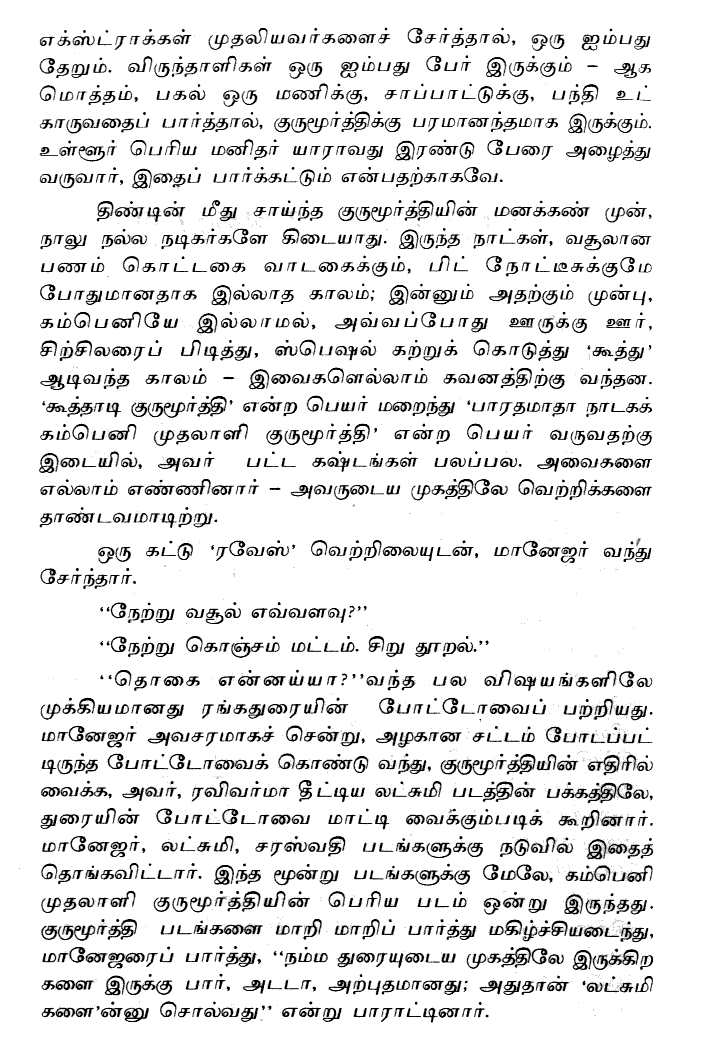 எக்ஸ்ட்ராக்கள் முதலியவர்களைச் சேர்த்தால், ஒரு ஐம்பது
தேறும். விருந்தாளிகள் ஒரு ஐம்பது பேர் இருக்கும் – ஆக
மொத்தம், பகல் ஒரு மணிக்கு, சாப்பாட்டுக்கு, பந்தி உட்
காருவதைப் பார்த்தால், குருமூர்த்திக்கு பரமானந்தமாக இருக்கும்.
உள்ளூர் பெரிய மனிதர் யாராவது இரண்டு பேரை அழைத்து
வருவார், இதைப் பார்க்கட்டும் என்பதற்காகவே.
திண்டின் மீது சாய்ந்த குருமூர்த்தியின் மனக்கண் முன்,
நாலு நல்ல நடிகர்களே கிடையாது. இருந்த நாட்கள், வசூலான
பணம் கொட்டகை வாடகைக்கும், பிட் நோட்டீசுக்குமே
போதுமானதாக இல்லாத காலம்; இன்னும் அதற்கும் முன்பு,
கம்பெனியே இல்லாமல், அவ்வப்போது ஊருக்கு ஊர்,
சிற்சிலரைப் பிடித்து, ஸ்பெஷல் கற்றுக் கொடுத்து ‘கூத்து’
ஆடிவந்த காலம் – இவைகளெல்லாம் கவனத்திற்கு வந்தன.
‘கூத்தாடி குருமூர்த்தி’ என்ற பெயர் மறைந்து ‘பாரதமாதா நாடகக்
கம்பெனி முதலாளி குருமூர்த்தி’ என்ற பெயர் வருவதற்கு
இடையில், அவர் பட்ட கஷ்டங்கள் பலப்பல. அவைகளை
எல்லாம் எண்ணினார் – அவருடைய முகத்திலே வெற்றிக்களை
தாண்டவமாடிற்று.
ஒரு கட்டு ‘ரவேஸ்’ வெற்றிலையுடன், மானேஜர் வந்து
சேர்ந்தார்.
“நேற்று வசூல் எவ்வளவு?”
“நேற்று கொஞ்சம் மட்டம். சிறு தூறல்.”
“தொகை என்னய்யா?”வந்த பல விஷயங்களிலே
முக்கியமானது ரங்கதுரையின் போட்டோவைப் பற்றியது.
மானேஜர் அவசரமாகச் சென்று, அழகான சட்டம் போடப்பட்
டிருந்த போட்டோவைக் கொண்டு வந்து, குருமூர்த்தியின் எதிரில்
வைக்க, அவர், ரவிவர்மா தீட்டிய லட்சுமி படத்தின் பக்கத்திலே,
துரையின் போட்டோவை மாட்டி வைக்கும்படிக் கூறினார்.
மானேஜர், லட்சுமி, சரஸ்வதி படங்களுக்கு நடுவில் இதைத்
தொங்கவிட்டார். இந்த மூன்று படங்களுக்கு மேலே, கம்பெனி
முதலாளி குருமூர்த்தியின் பெரிய படம் ஒன்று இருந்தது.
குருமூர்த்தி படங்களை மாறி மாறிப் பார்த்து மகிழ்ச்சியடைந்து,
மானேஜரைப் பார்த்து, “நம்ம துரையுடைய முகத்திலே இருக்கிற
களை இருக்கு பார், அடடா, அற்புதமானது; அதுதான் ‘லட்சுமி
களை’ன்னு சொல்வது” என்று பாராட்டினார்.